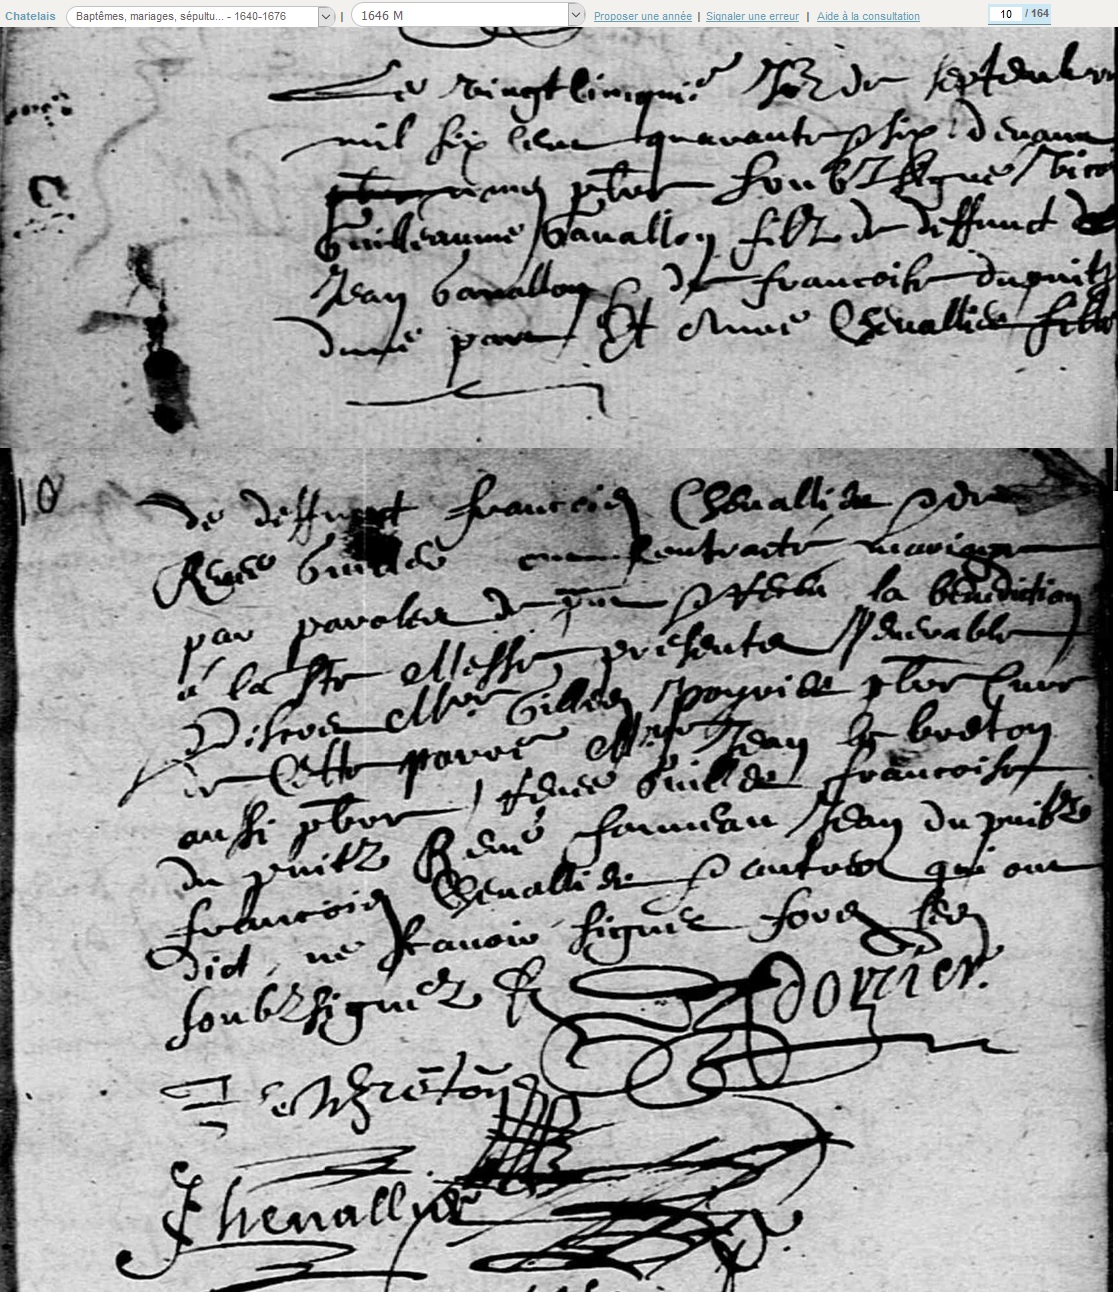 Chatelais Baptêmes, mariages, sépultu... - 1640-1676 | 1646 M Proposer une année | Signaler une erreur | Aide à la consultation 10 / 164
Le vingt cinquie Jor de septembre
mil six cent quarante & six devant
pbre soubz signe
Guilleaume Gavallon filz de deffunct
Jean Gavallon & de francoise dupuitz
dune part Et Chevallier fille
10
de deffunct francois Chevallier & de
Renee Guillee ont contracte mariage
par parolles de pnt & receu la benediction
a la ste Messe presentes Venerable
Discret Mre Gilles pbre Cure
de Cette parre Mre Jean le breton
aussi pbre Renee Guillee francoise
du puitz René Jean du puitz
francois Chevallier & autres qui ont
dict ne scavoir signer fors les
soubzsignez
J Le Breton
F Chevallier